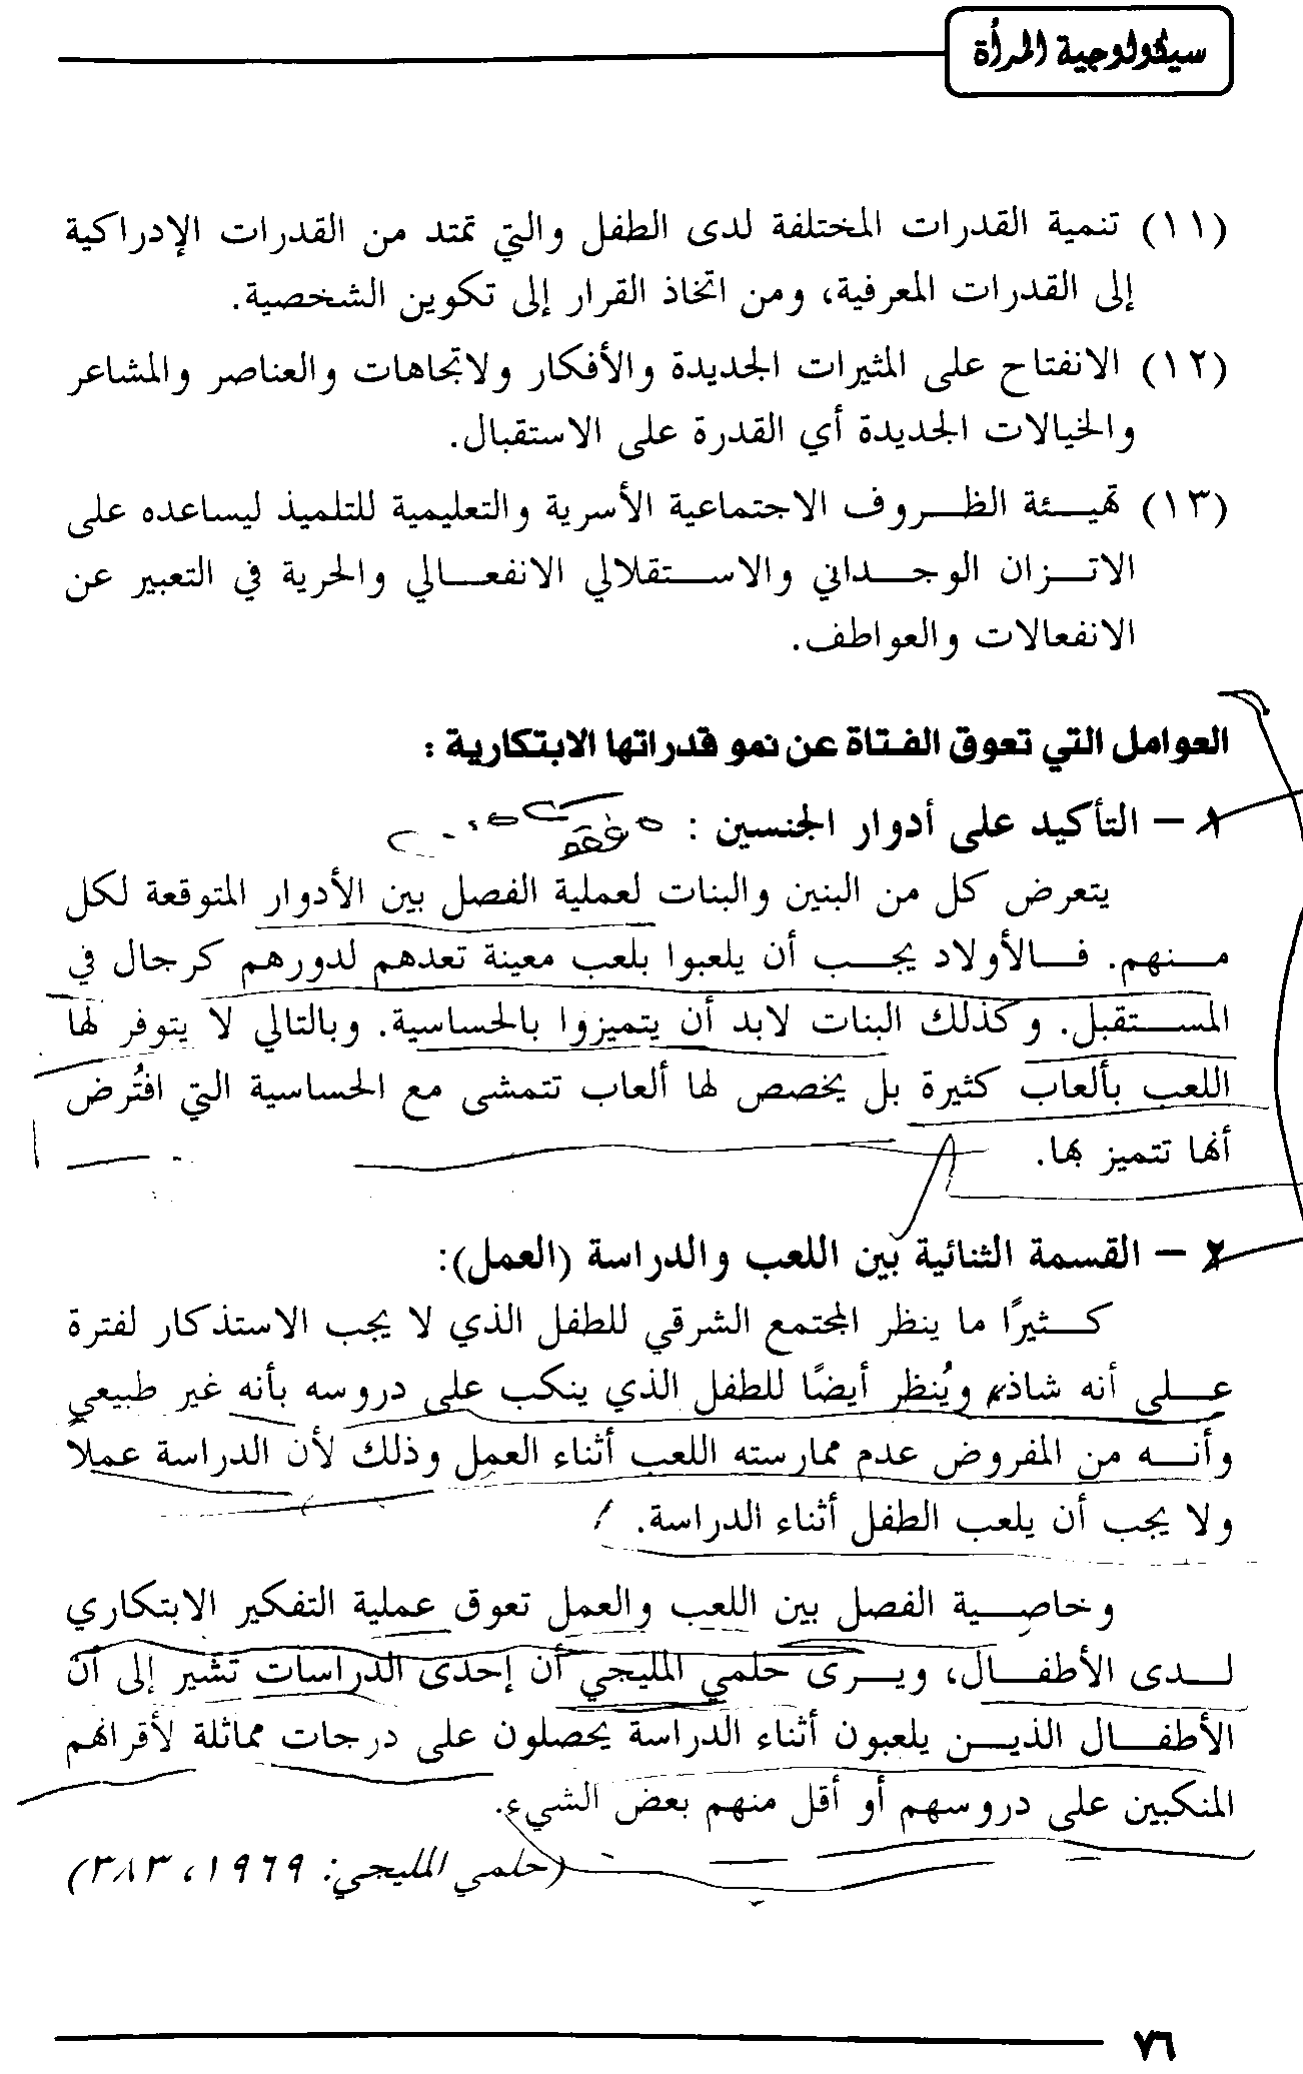 سيكولوجية المرأة
(١١) تنمية القدرات المختلفة لدى الطفل والتي تمتد من القدرات الإدراكية
إلى القدرات المعرفية، ومن اتخاذ القرار إلى تكوين الشخصية.
(١٢) الانفتاح على المثيرات الجديدة والأفكار ولاتجاهات والعناصر والمشاعر
والخيالات الجديدة أي القدرة على الاستقبال.
(١٣) تهيئة الظروف الاجتماعية الأسرية والتعليمية للتلميذ ليساعده على
الاتزان الوجداني والاستقلالي الانفعالي والحرية في التعبير عن
الانفعالات والعواطف.
العوامل التي تعوق الفتاة عن نمو قدراتها الابتكارية :
١ – التأكيد على أدوار الجنسين :
يتعرض كل من البنين والبنات لعملية الفصل بين الأدوار المتوقعة لكل
منهم. فالأولاد يجب أن يلعبوا بلعب معينة تعدهم لدورهم كرجال في
المستقبل. وكذلك البنات لابد أن يتميزوا بالحساسية. وبالتالي لا يتوفر لها
اللعب بألعاب كثيرة بل يخصص لها ألعاب تتمشى مع الحساسية التي افتُرض
أنها تتميز بها.
٢ – القسمة الثنائية بين اللعب والدراسة (العمل):
كثيرًا ما ينظر المجتمع الشرقي للطفل الذي لا يجب الاستذكار لفترة
على أنه شاذ، ويُنظر أيضًا للطفل الذي ينكب على دروسه بأنه غير طبيعي
وأنه من المفروض عدم ممارسته اللعب أثناء العمل وذلك لأن الدراسة عملاً
ولا يجب أن يلعب الطفل أثناء الدراسة.
وخاصية الفصل بين اللعب والعمل تعوق عملية التفكير الابتكاري
لدى الأطفال، ويرى حلمي المليجي أن إحدى الدراسات تشير إلى أن
الأطفال الذين يلعبون أثناء الدراسة يحصلون على درجات مماثلة لأقرانهم
المنكبين على دروسهم أو أقل منهم بعض الشيء.
(حلمي المليجي: ١٩٦٩، ٣٨٣)
٧٦